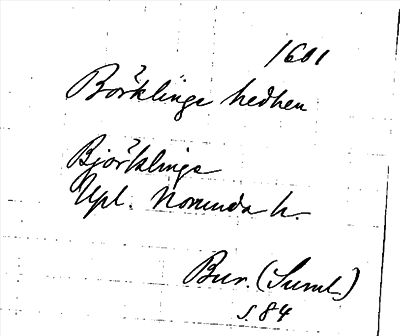 1601
Börklinge hedhen
Björklinge
Upl. Norunda h.
Bur. (Suml.)
s. 84